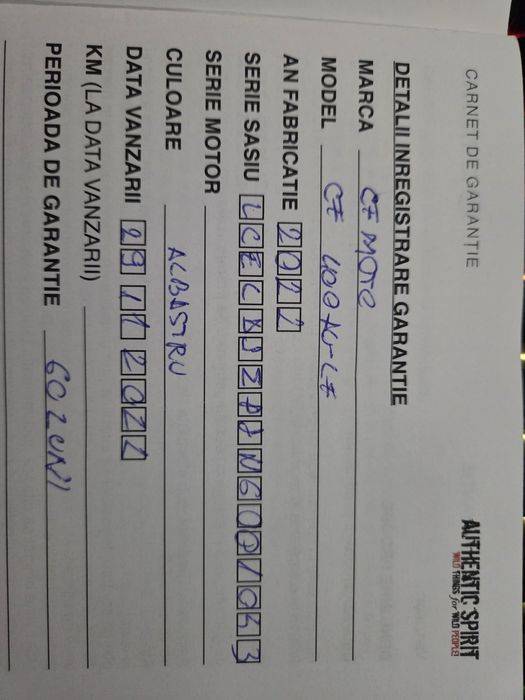 CARNET DE GARANTIE
AUTHENTIC SPIRIT
WILD THINGS for WILD PEOPLE!
DETALII INREGISTRARE GARANTIE
MARCA CF MOTO
MODEL CF 400AU-LF
AN FABRICATIE 2022
SERIE SASIU
SERIE MOTOR
CULOARE ALBASTRU
DATA VANZARII 29 11 2022
KM (LA DATA VANZARII)
PERIOADA DE GARANTIE 60 LUNI